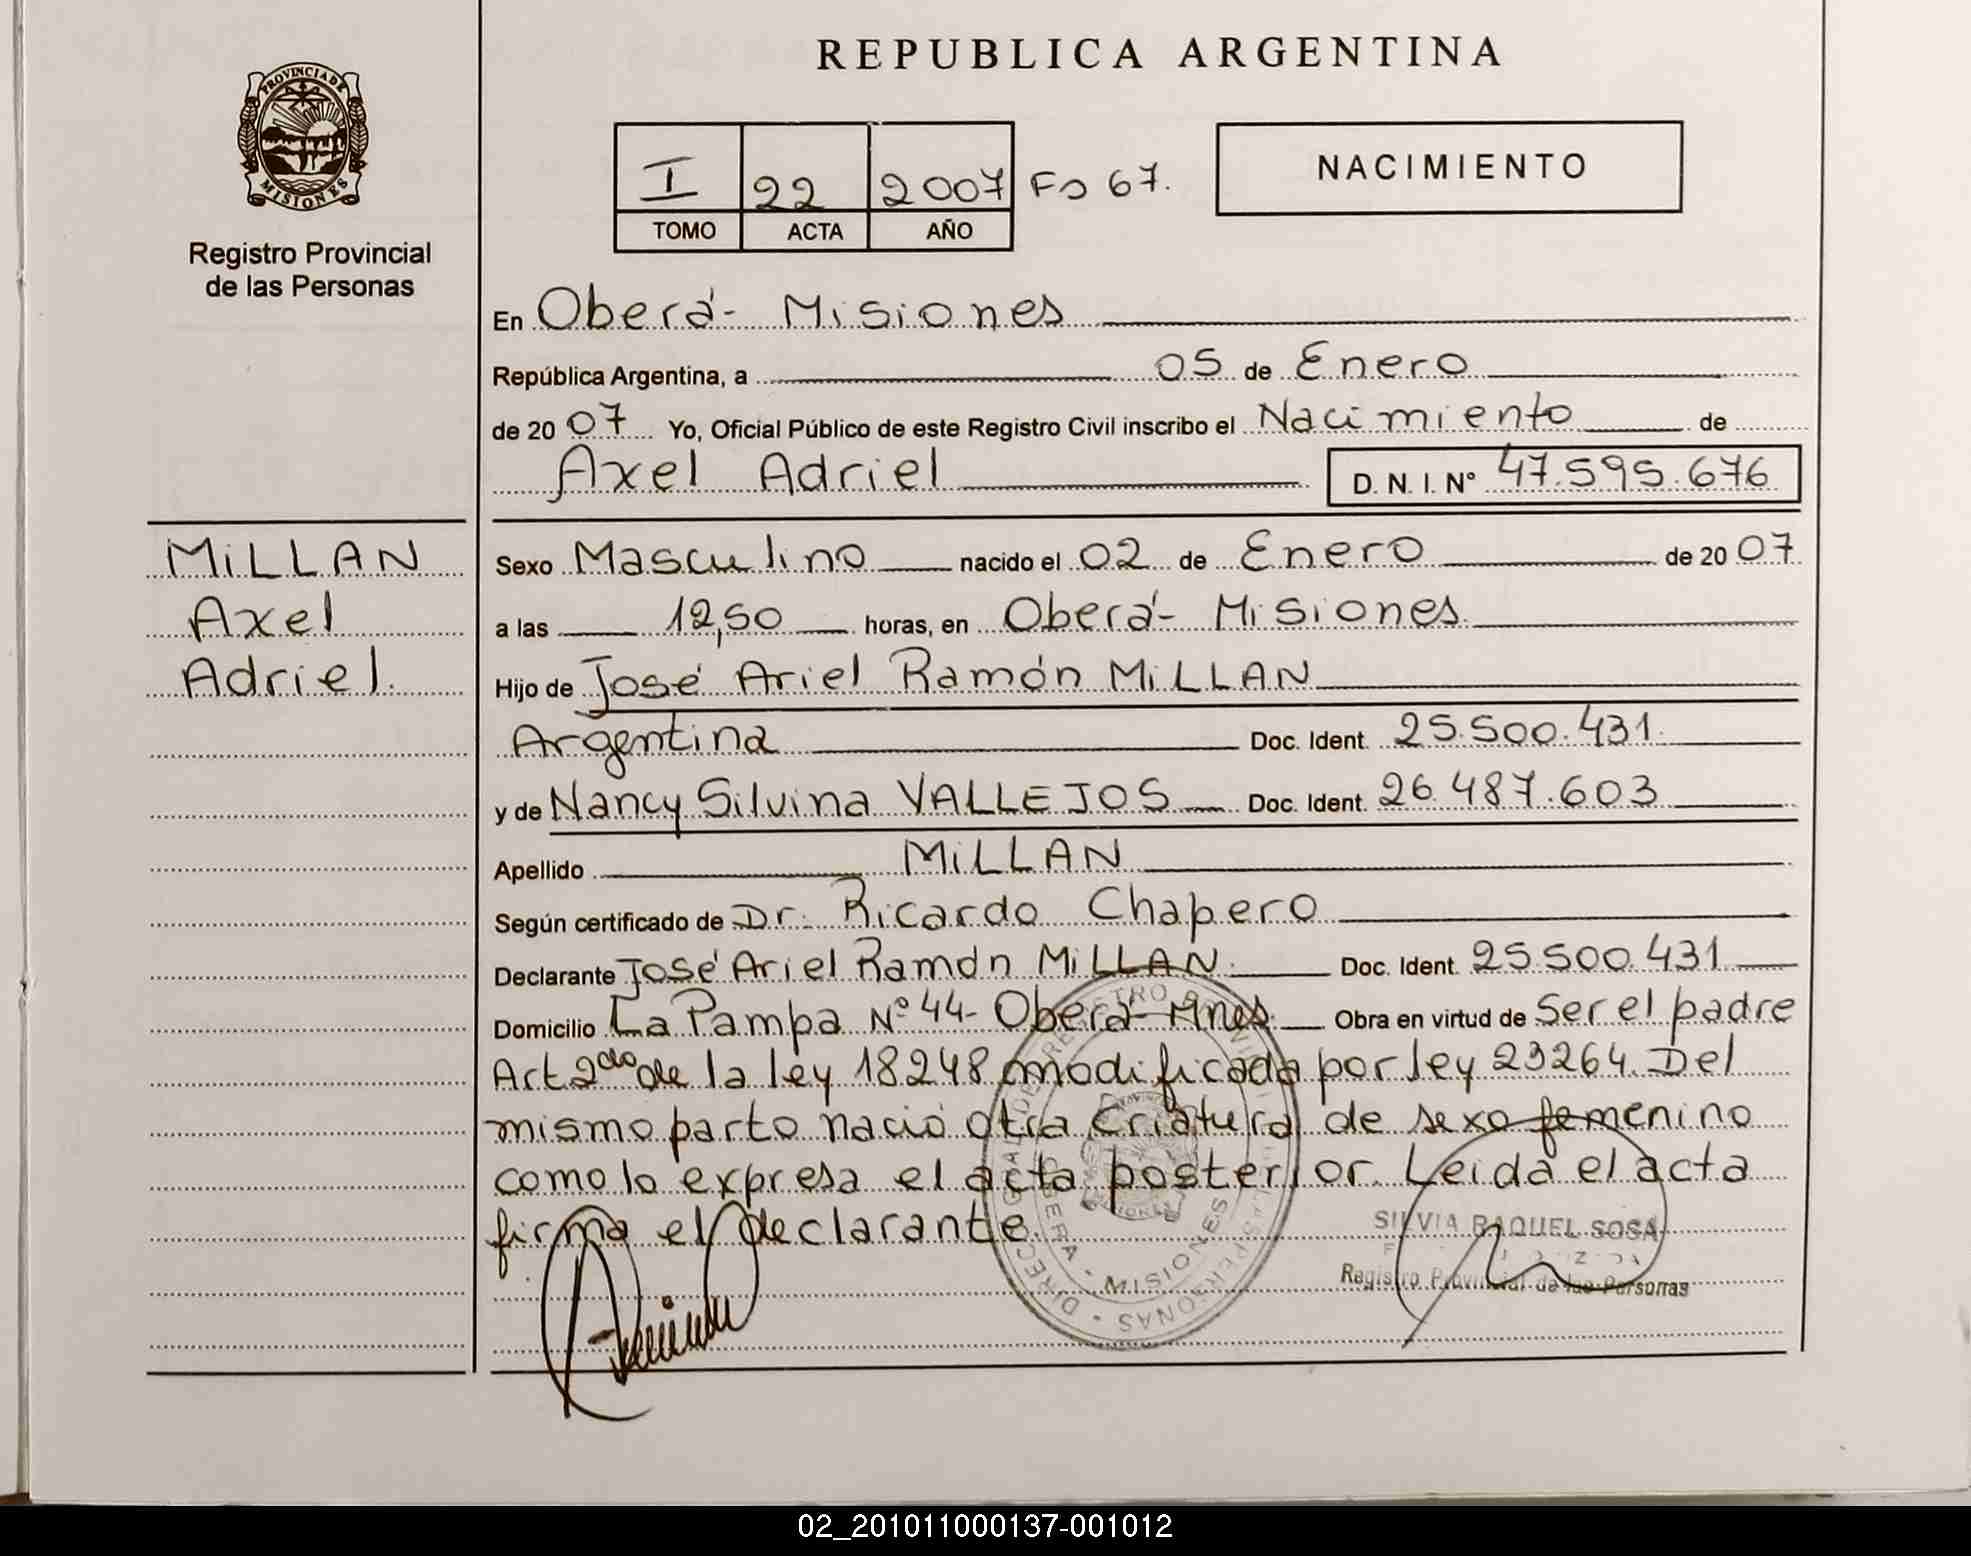 REPUBLICA ARGENTINA
PROVINCIA DE
MISIONES
Registro Provincial
de las Personas
I 22 2007 Fs 67.
TOMO ACTA AÑO
NACIMIENTO
En Oberá - Misiones
República Argentina, a 05 de Enero
de 20 07 Yo, Oficial Público de este Registro Civil inscribo el Nacimiento de
Axel Adriel D. N. I. Nº 47.595.676
MiLLAN
Axel
Adriel.
Sexo Masculino nacido el 02 de Enero de 20 07
a las 12,50 horas, en Oberá - Misiones.
Hijo de José Ariel Ramón MiLLAN
Argentina Doc. Ident. 25.500.431.
y de Nancy Silvina VALLEJOS Doc. Ident. 26.487.603
Apellido MiLLAN
Según certificado de Dr. Ricardo Chapero
Declarante José Ariel Ramón MiLLAN. Doc. Ident. 25.500.431
Domicilio La Pampa Nº 44 - Oberá - Mnes. Obra en virtud de Ser el padre
Art 2do de la ley 18248 modificada por ley 23264. Del
mismo parto nació otra criatura de sexo femenino
como lo expresa el acta posterior. Leida el acta
firma el declarante.
OBERA - MISIONES
SILVIA RAQUEL SOSA
Registro Provincial de las Personas
02_201011000137-001012